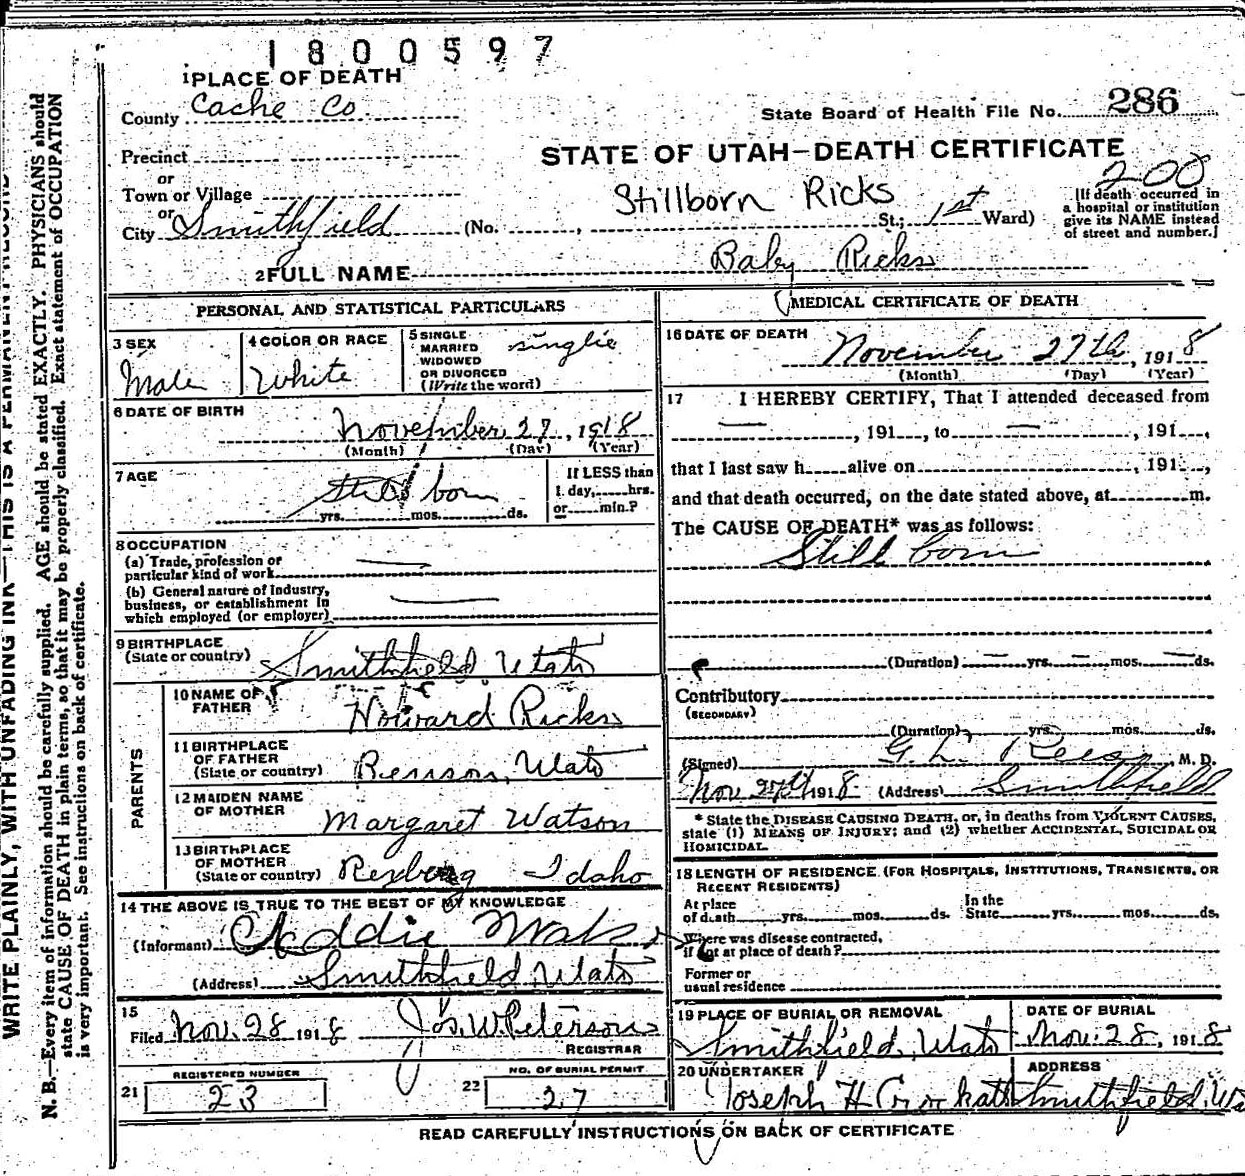 1800597
1 PLACE OF DEATH
County Cache Co.
State Board of Health File No. 286
Precinct
or
STATE OF UTAH-DEATH CERTIFICATE
200
Town or Village
or
Stillborn Ricks
City Smithfield (No. , St.; 1st Ward)
[If death occurred in
a hospital or institution
give its NAME instead
of street and number.]
2 FULL NAME Baby Ricks
PERSONAL AND STATISTICAL PARTICULARS
3 SEX
Male
4 COLOR OR RACE
White
5 SINGLE
MARRIED
WIDOWED
OR DIVORCED
(Write the word)
single
6 DATE OF BIRTH
November 27, 1918
(Month) (Day) (Year)
7 AGE
Still born
yrs. mos. ds.
If LESS than
1 day, hrs.
or min.?
8 OCCUPATION
(a) Trade, profession or
particular kind of work
(b) General nature of Industry,
business, or establishment in
which employed (or employer)
9 BIRTHPLACE
(State or country) Smithfield Utah
PARENTS
10 NAME OF
FATHER Howard Ricks
11 BIRTHPLACE
OF FATHER
(State or country) Benson, Utah
12 MAIDEN NAME
OF MOTHER Margaret Watson
13 BIRTHPLACE
OF MOTHER
(State or country) Rexburg Idaho
14 THE ABOVE IS TRUE TO THE BEST OF MY KNOWLEDGE
(Informant) Addie
(Address) Smithfield Utah
15
Filed Nov. 28 1918 Jos. W. Peterson
REGISTRAR
REGISTERED NUMBER
21 23
NO. OF BURIAL PERMIT
22 27
MEDICAL CERTIFICATE OF DEATH
16 DATE OF DEATH
November 27th, 1918
(Month) (Day) (Year)
17 I HEREBY CERTIFY, That I attended deceased from
— , 191 , to — , 191 ,
that I last saw h alive on , 191 ,
and that death occurred, on the date stated above, at m.
The CAUSE OF DEATH* was as follows:
Still born
(Duration) — yrs. — mos. — ds.
Contributory
(SECONDARY)
(Duration) yrs. mos. ds.
(Signed) G. L. Rees, M. D.
Nov 27th 1918 (Address) Smithfield
* State the DISEASE CAUSING DEATH, or, in deaths from VIOLENT CAUSES,
state (1) MEANS OF INJURY; and (2) whether ACCIDENTAL, SUICIDAL OR
HOMICIDAL.
18 LENGTH OF RESIDENCE (FOR HOSPITALS, INSTITUTIONS, TRANSIENTS, OR
RECENT RESIDENTS)
At place
of death yrs. mos. ds.
In the
State yrs. mos. ds.
Where was disease contracted,
if not at place of death?
Former or
usual residence
19 PLACE OF BURIAL OR REMOVAL
Smithfield, Utah
DATE OF BURIAL
Nov. 28, 1918
20 UNDERTAKER
Joseph H
ADDRESS
Smithfield,
READ CAREFULLY INSTRUCTIONS ON BACK OF CERTIFICATE
WRITE PLAINLY, WITH UNFADING INK—THIS IS A PERMANENT RECORD
N. B.—Every item of information should be carefully supplied. AGE should be stated EXACTLY. PHYSICIANS should
state CAUSE OF DEATH in plain terms, so that it may be properly classified. Exact statement of OCCUPATION
is very important. See instructions on back of certificate.